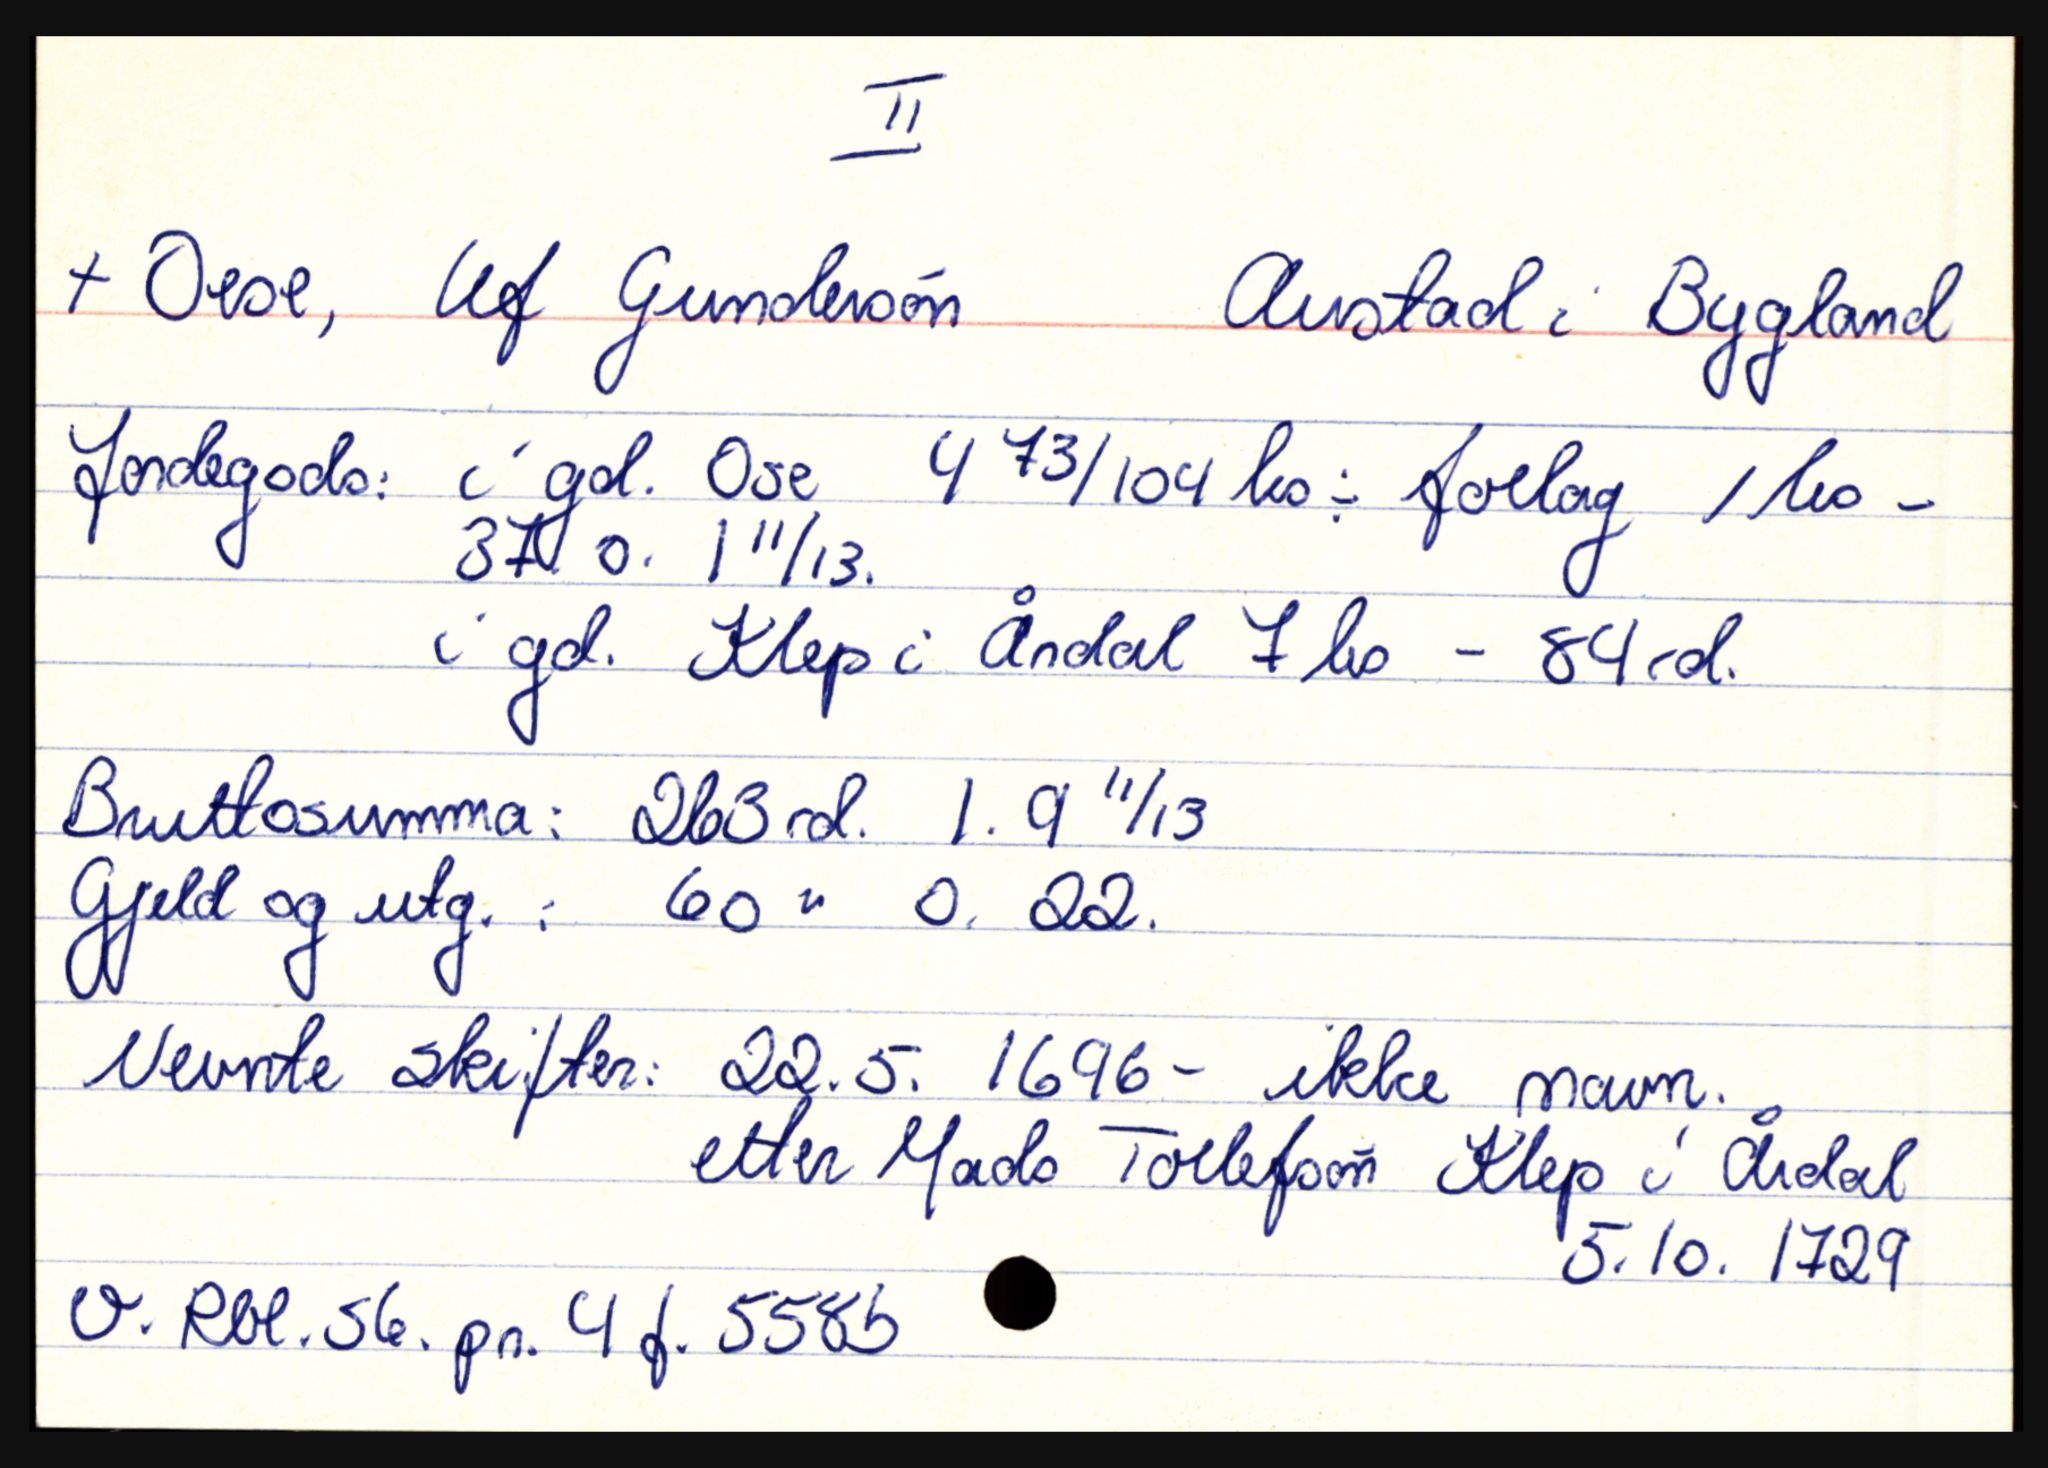 II
+ Oese, Ulf Gundersön Austad i Bygland
Jordegods: i gd. Ose 4 73/104 hs ÷ forlag 1 hs -
37. 0. 1 11/13.
i gd. Klep i Årdal 7 hs - 84 rd.
Bruttosumma: 263 rd. 1. 9 11/13
Gjeld og utg. : 60 " 0. 22.
Nevnte skifter: 22.5. 1696 - ikke navn.
etter Mads Tollefsön Klep i Årdal
5.10. 1729
V. Rbl. 56. pr. 4 f. 558b